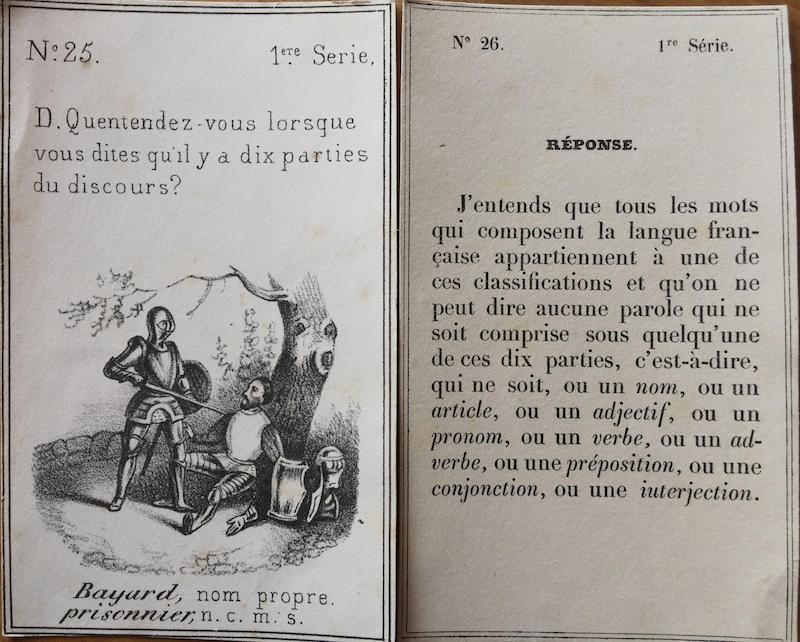 N.º 25.
1.ere Serie.
D. Quentendez-vous lorsque
vous dites qu'il y a dix parties
du discours?
Bayard, nom propre.
prisonnier, n. c. m. s.
N° 26.
1re Série.
RÉPONSE.
J'entends que tous les mots
qui composent la langue fran-
çaise appartiennent à une de
ces classifications et qu'on ne
peut dire aucune parole qui ne
soit comprise sous quelqu'une
de ces dix parties, c'est-à-dire,
qui ne soit, ou un nom, ou un
article, ou un adjectif, ou un
pronom, ou un verbe, ou un ad-
verbe, ou une préposition, ou une
conjonction, ou une iuterjection.